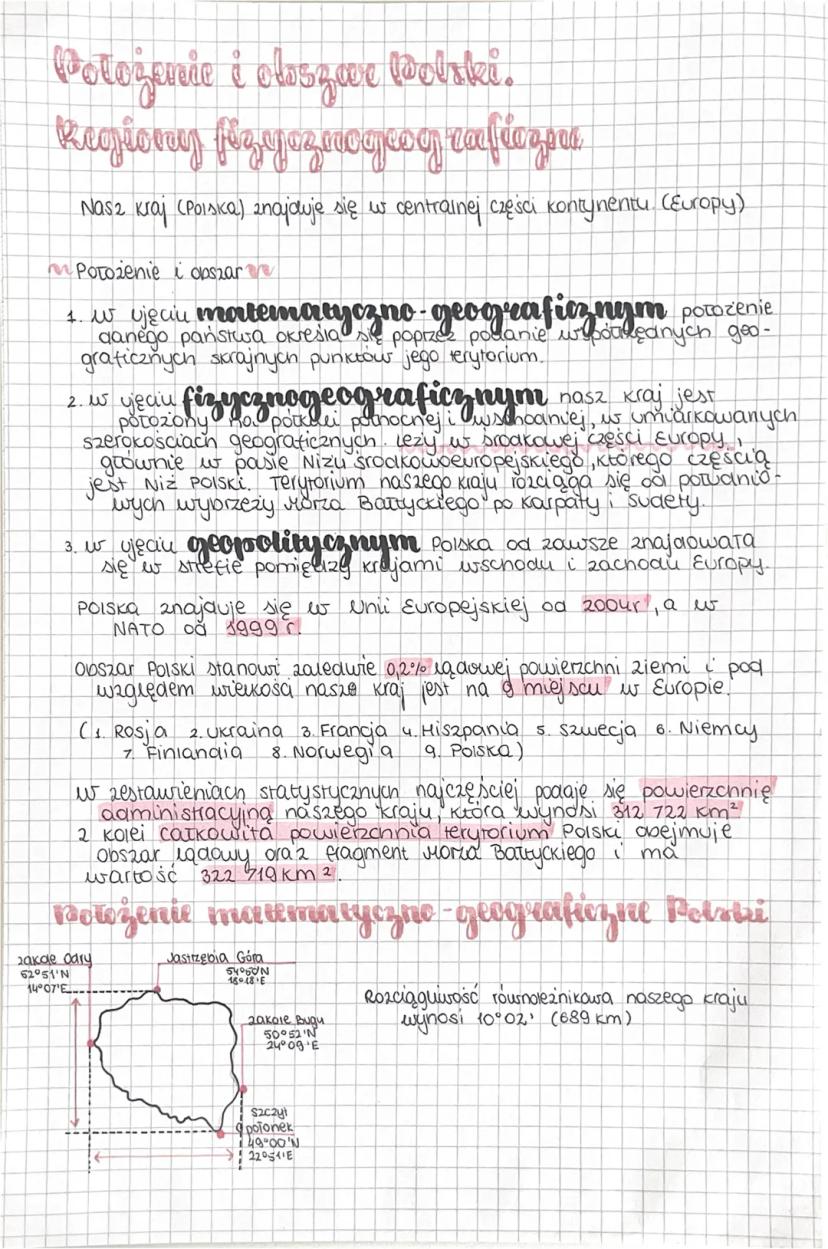 Położenie i obszar Polski.
Regiony fizycznogeograficzne
Nasz kraj (Polska) znajduje się w centralnej części kontynentu (Europy)
Położenie i obszar
1. w ujęciu matematyczno-geograficznym położenie
danego państwa określa się poprzez podanie współrzędnych geo-
graficznych skrajnych punktów jego terytorium.
2. w ujęciu fizycznogeograficznym nasz kraj jest
położony na półkuli północnej i wschodniej, w umiarkowanych
szerokościach geograficznych. Leży w środkowej części Europy,
głównie w pasie Niżu Środkowoeuropejskiego, którego częścią
jest Niż Polski. Terytorium naszego kraju rozciąga się od południo-
wych wybrzeży Morza Bałtyckiego po Karpaty i Sudety.
3. w ujęciu geopolitycznym Polska od zawsze znajdowała
się w strefie pomiędzy krajami wschodu i zachodu Europy.
Polska znajduje się w Unii Europejskiej od 2004r, a w
NATO od 1999 r.
Obszar Polski stanowi zaledwie 0,2% lądowej powierzchni ziemi i pod
względem wielkości nasze kraj jest na 9 miejscu w Europie.
(1. Rosja 2. Ukraina 3. Francja 4. Hiszpania 5. Szwecja 6. Niemcy
7. Finlandia 8. Norwegia 9. Polska)
W zestawieniach statystycznych najczęściej podaje się powierzchnię
administracyjną naszego kraju, która wynosi 312 722 km²
Z kolei całkowita powierzchnia terytorium Polski obejmuje
obszar lądowy oraz fragment Morza Bałtyckiego i ma
wartość 322 719 km².
Położenie matematyczno-geograficzne Polski
zakole Odry
52°51'N
14°07'E
Jastrzębia Góra
54°50'N
18°18'E
Rozciągliwość równoleżnikowa naszego kraju
wynosi 10°02' (689 km)
zakole Bugu
50°52'N
24°09'E
Szczyt
połonek
49°00'N
22°51'E